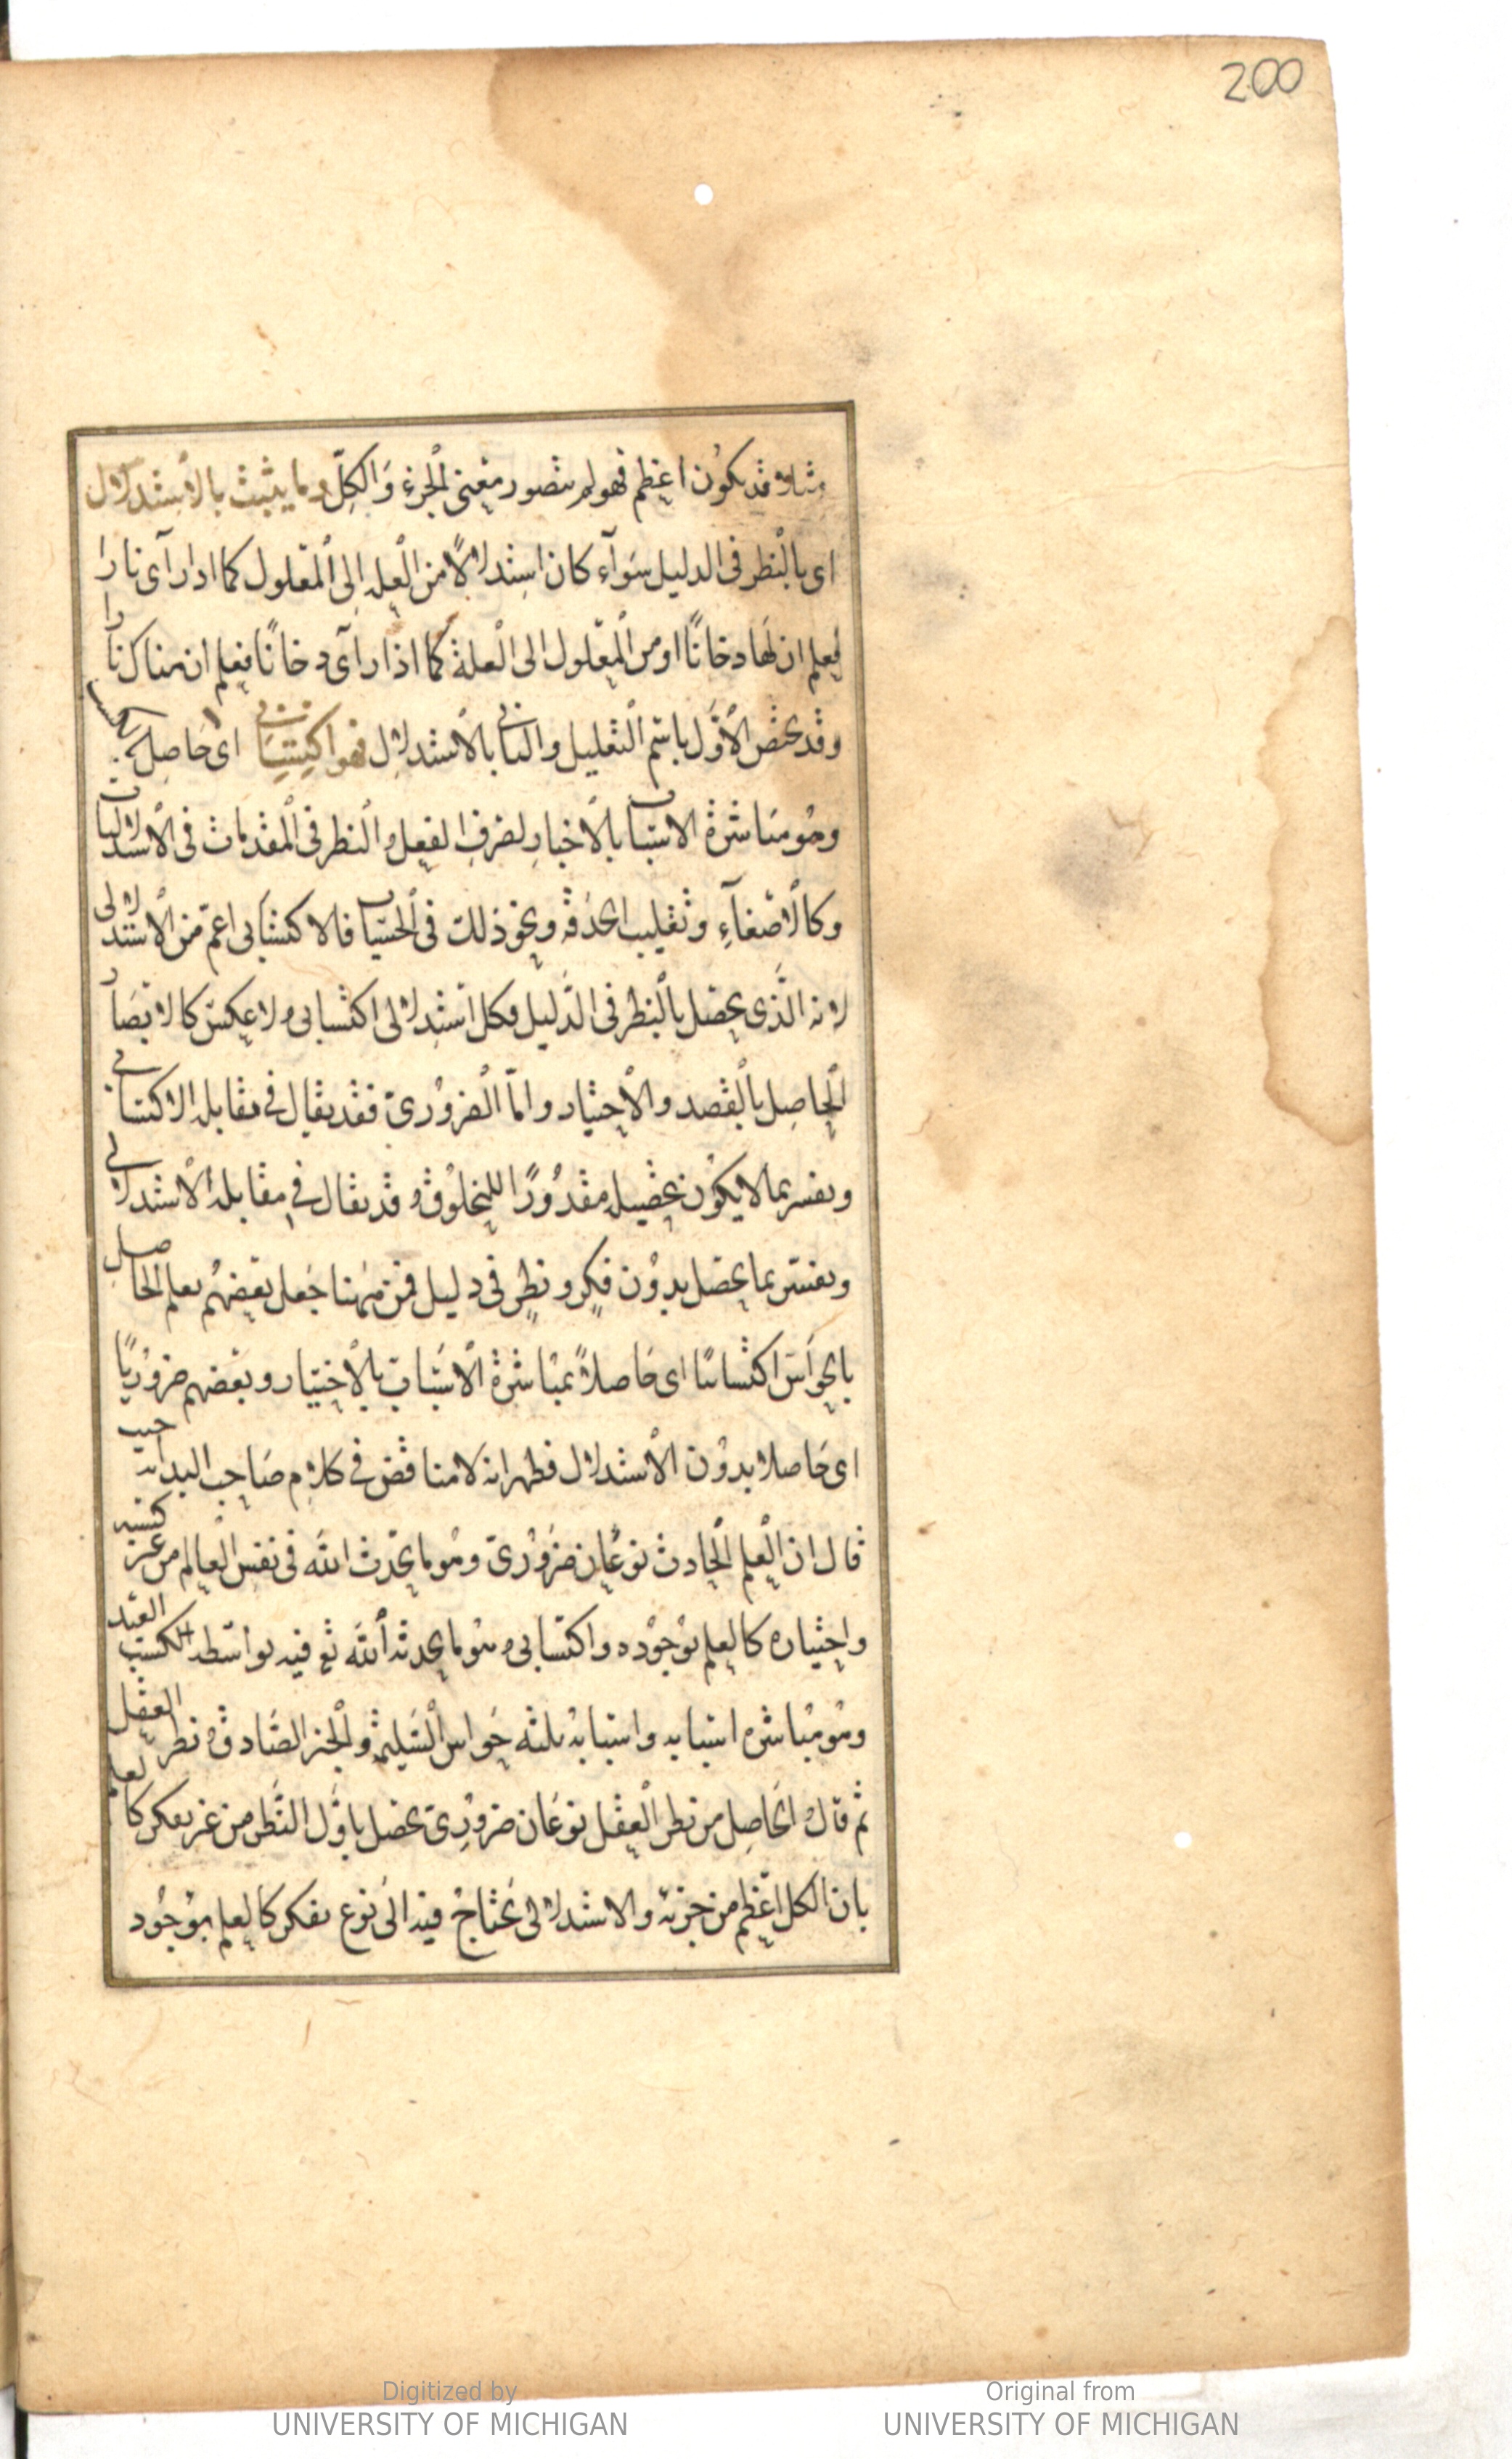 200
مثلا قد يكون اعظم فهو لم يتصور معنى الجزء والكل وما يثبت بالاستدلال
اى بالنظر فى الدليل سوآء كان استدلالًا من العلة الى المعلول كما اذا رآى نارا
فعلم ان لها دخانًا او من المعلول الى العلة كما اذا رآى دخانًا فعلم ان هناك نارا
وقد يخص الاول باسم التعليل والثانى بالاستدلال فهو اكتسابى اى حاصل بالكسب
وهو مباشرة الاسباب بالاختيار لصرف العقل والنظر فى المقدمات فى الاستدلاليات
وكالاصغآء وتقليب الحدقة ونحو ذلك فى الحسيات فالاكتسابى اعم من الاستدلالى
لانه الذى يحصل بالنظر فى الدليل فكل استدلالى اكتسابى ولا عكس كالابصار
الحاصل بالقصد والاختيار واما الضرورى فقد يقال فى مقابلة الاكتسابى
ويفسر بما لا يكون تحصيله مقدورًا للمخلوق وقد يقال فى مقابلة الاستدلالى
ويفسر بما يحصل بدون فكر ونظر فى دليل فمن ههنا جعل بعضهم العلم الحاصل
بالحواس اكتسابيا اى حاصلاً بمباشرة الاسباب بالاختيار وبعضهم ضروريًا
اى حاصلا بدون الاستدلال فظهر انه لا مناقض فى كلام صاحب البداية حيث
قال ان العلم الحادث نوعان ضرورى وهو ما يحدث الله فى نفس العالم من غير كسبه
واختياره كالعلم بوجوده واكتسابى وهو ما يحدثه الله تع فيه بواسطة الكسب العبد
وهو مباشرة اسبابه واسبابه ثلثه حواس السليمة والخبر الصادق ونظر العقل
ثم قال والحاصل من نظر العقل نوعان ضرورى يحصل باول النظر من غير تفكر كالعلم
بان الكل اعظم من جزئه والاستدلالى يحتاج فيه الى نوع تفكر كالعلم بوجود
Digitized by
UNIVERSITY OF MICHIGAN
Original from
UNIVERSITY OF MICHIGAN